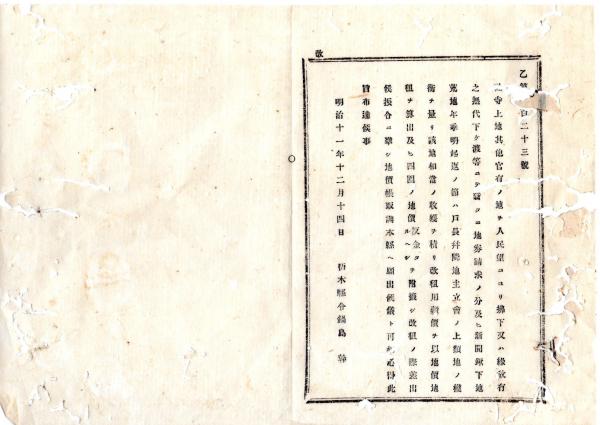 乙第 百二十三號
寺上地其他官有ノ地ヲ人民望ニヨリ拂下又ハ緣故有
之無代下ケ渡等ニテ 地券請求ノ分及ヒ新開鍬下地
荒地年季明起返ノ節ハ戸長幷隣地主立會ノ上類地ノ權
衡ヲ量リ該地相當ノ收穫ヲ積リ改租用 價ヲ以地價地
租ヲ算出及ヒ 地價 金 ヲ附 シ改租ノ際差出
候振合ニ準シ地價帳取調本縣ヘ願出候儀ト可 心得此
旨布達候事
明治十一年十二月十四日 栃木縣令鍋島 幹